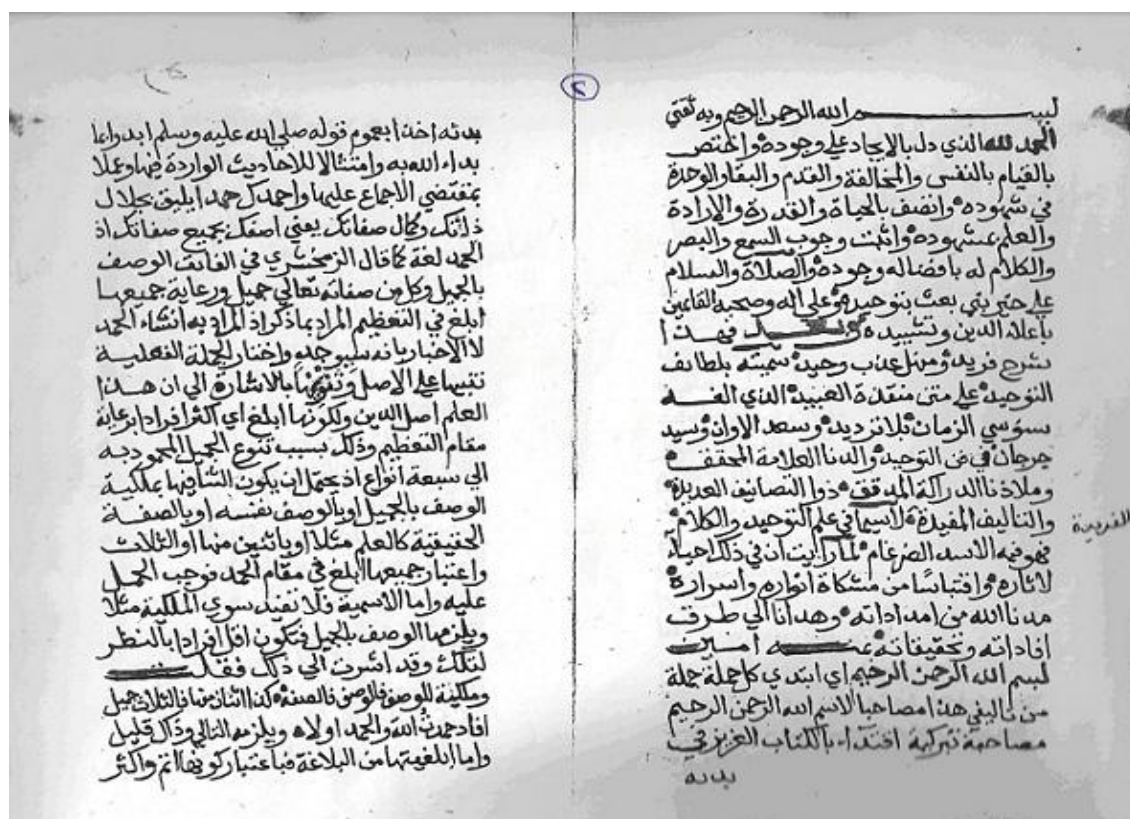 بسم الله الرحمن الرحيم وبه ثقتي
الحمد لله الذي دل بالايجاد على وجوده واختص
بالقيام بالنفس والمخالفة والقدم والبقاء والوحدة
في شهوده واتصف بالحياة والقدرة والارادة
والعلم بمشهوده واثبت وجوب السمع والبصر
والكلام له بافضاله وجوده والصلاة والسلام
على خير نبي بعث بتوحيده وعلى اله وصحبه القائمين
باعلاء الدين وتشييده وبعد فهذا
شرح فريد ومنهل عذب وحيد سميته بلطائف
التوحيد على متن منقذة العبيد الذي الفه
سنوسي الزمان بلا ترديد وسعد الاوان وسيد
جرجان في فن التوحيد والدنا العلامة المحقق
وملاذنا الدراكة المدقق ذوا التصانيف العديدة
والتاليف المفيدة لاسيما في علم التوحيد والكلام
الغريبة
فهو فيه الاسد الضرغام لما رايت ان في ذلك احياء
لاثاره واقتباسا من مشكاة انواره واسراره
مدنا الله من امداداته وهدانا الي طرف
افاداته وتحقيقاته امين
بسم الله الرحمن الرحيم اي ابتدي كل جملة جملة
من تاليفي هذا مصاحبا لاسم الله الرحمن الرحيم
مصاحبة تبركية اقتداء بالكتاب العزيز في
بدئه
2
بدئه اخذا بعموم قوله صلي الله عليه وسلم ابدوا بما
بداء الله به وامتثالا للاحاديث الواردة فيها وعملا
بمقتضي الاجماع عليها واحمدك حمدا يليق بجلال
ذاتك وكمال صفاتك يعني اصفك بجميع صفاتك اذ
الحمد لغة كما قال الزمخشري في الفائق الوصف
بالجميل وكل من صفاته تعالي جميل ورعاية جميعها
ابلغ في التعظيم المراد بما ذكر اذ المراد به انشاء الحمد
لا الاخبار بانه سيوجده واختار الجملة الفعلية
تنبيها على الاصل بالاشارة الي ان هذا
العلم اصل الدين ولكونها ابلغ اي اكثر افرادا برعاية
مقام التعظيم وذلك بسبب تنوع الجميل المحمود به
الي سبعة انواع اذ يحتمل ان يكون الثنا فيها بملكية
الوصف بالجميل او بالوصف نفسه او بالصفة
الحقيقية كالعلم مثلا او باثنين منها او الثلاث
واعتبار جميعها ابلغ في مقام الحمد فوجب الحمل
عليه واما الاسمية فلا تفيد سوي الملكية مثلا
ويلزمها الوصف بالجميل فتكون اقل افرادا بالنظر
لتلك وقد اشرت الي ذلك فقلت
وملكية للوصف فالوصف فالصفة كذا اثنان منها فالثلاث جميل
افاد حمدت الله والحمد اولاه ويلزمه التالي وذاك قليل
واما ابلغيتها من البلاغة فباعتبار كونها اتم واكثر